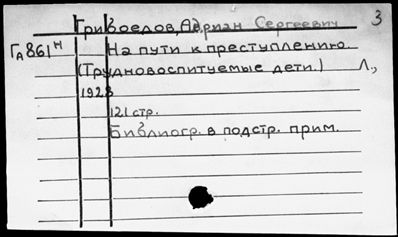 Грибоедов, Адриан Сергеевич 3
ГА861н На пути к преступлению.
(Трудновоспитуемые дети.) Л.,
1928
121 стр.
Библиогр. в подстр. прим.